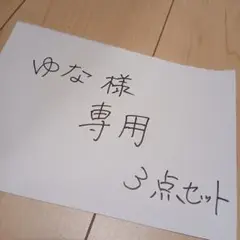 ゆな様
専用
3点セット